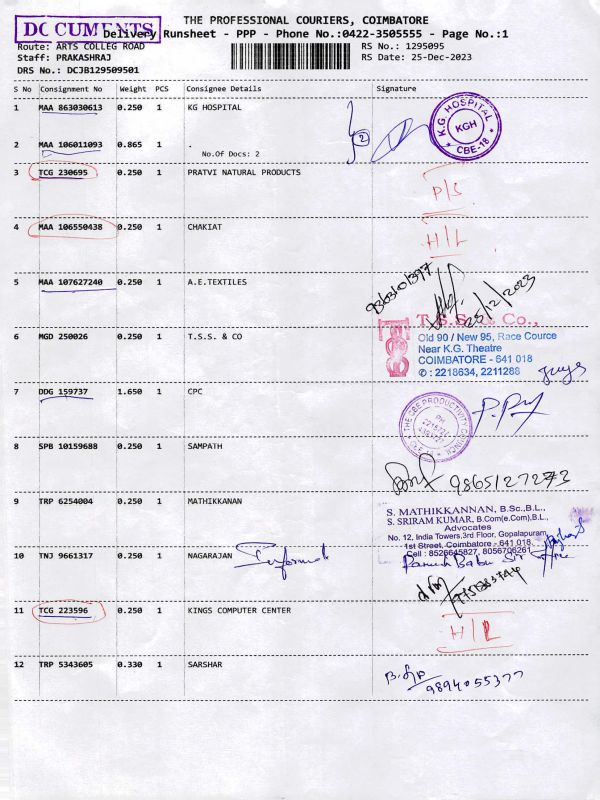 DOCUMENTS
THE PROFESSIONAL COURIERS, COIMBATORE
Delivery Runsheet - PPP - Phone No.:0422-3505555 - Page No.:1
Route: ARTS COLLEG ROAD RS No.: 1295095
Staff: PRAKASHRAJ RS Date: 25-Dec-2023
DRS No.: DCJB129509501
S No Consignment No Weight PCS Consignee Details Signature
1 MAA 863030613 0.250 1 KG HOSPITAL
K.G. HOSPITAL
KGH
CBE-18
2
2 MAA 106011093 0.865 1 .
No.Of Docs: 2
3 TCG 230695 0.250 1 PRATVI NATURAL PRODUCTS
P/S
4 MAA 106550438 0.250 1 CHAKIAT
H/L
5 MAA 107627240 0.250 1 A.E.TEXTILES
9363101397
25/12/2023
6 MGD 250026 0.250 1 T.S.S. & CO
T.S.S. & Co.,
Old 90 / New 95, Race Cource
Near K.G. Theatre
COIMBATORE - 641 018
: 2218634, 2211288
7 DDG 159737 1.650 1 CPC
THE CBE PRODUCTIVITY COUNCIL
PH
8 SPB 10159688 0.250 1 SAMPATH
9865127273
9 TRP 6254004 0.250 1 MATHIKKANAN
S. MATHIKKANNAN, B.Sc.,B.L.,
S. SRIRAM KUMAR, B.Com(e.Com),B.L.,
Advocates
No. 12, India Towers,3rd Floor, Gopalapuram
1st Street, Coimbatore - 641 018
Cell : 8526645827, 8056706261
10 TNJ 9661317 0.250 1 NAGARAJAN Informed
11 TCG 223596 0.250 1 KINGS COMPUTER CENTER
H/L
12 TRP 5343605 0.330 1 SARSHAR
9894055377